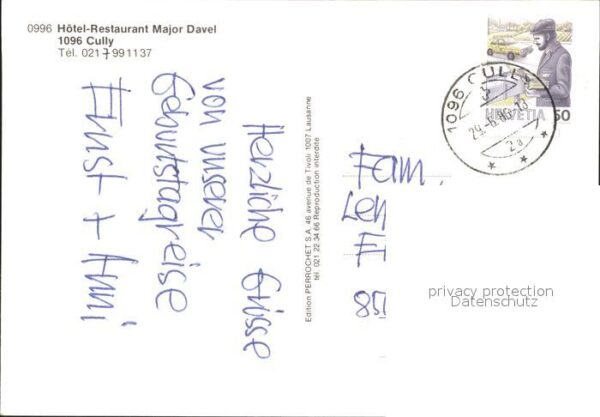 0996 Hôtel-Restaurant Major Davel
1096 Cully
Tél. 021 7 991137
Herzliche Grüsse
von unserer
Geburtstagreise
Ernst + Anni
Edition PERROCHET S.A. 46 avenue de Tivoli 1007 Lausanne
tél. 021 22 34 66 Reproduction interdite
1096 CULLY
2a
HELVETIA 50
Fam.
Len
privacy protection
Datenschutz